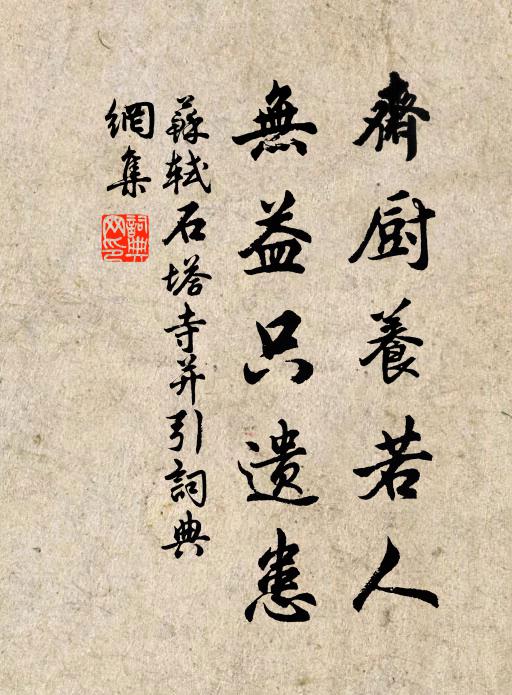 齋厨養若人
無益只遺患
蘇軾石塔寺并引詞典
網集
詞典
网印